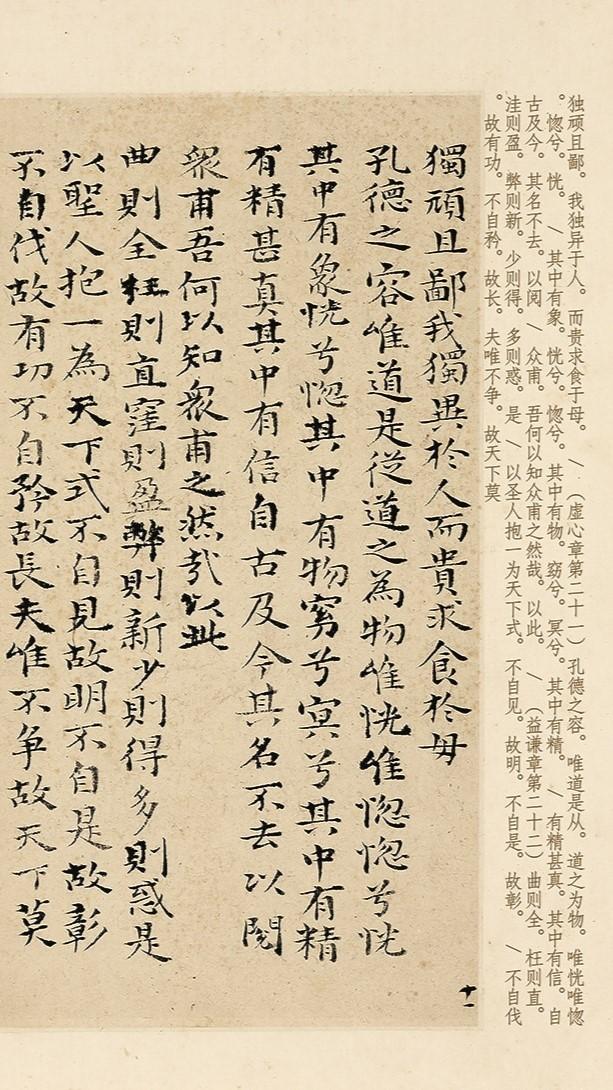 独顽且鄙。我独异于人。而贵求食于母。/（虚心章第二十一）孔德之容。唯道是从。道之为物。唯恍唯惚
。惚兮。恍。/其中有象。恍兮。惚兮。其中有物。窈兮。冥兮。其中有精。/有精甚真。其中有信。自
古及今。其名不去。以阅/众甫。吾何以知众甫之然哉。以此。/（益谦章第二十二）曲则全。枉则直。
洼则盈。弊则新。少则得。多则惑。是/以圣人抱一为天下式。不自见。故明。不自是。故彰。/不自伐
。故有功。不自矜。故长。夫唯不争。故天下莫
十一
獨頑且鄙我獨異於人而貴求食於母
孔德之容唯道是從道之為物唯恍唯惚惚兮恍
其中有象恍兮惚其中有物窈兮冥兮其中有精
有精甚真其中有信自古及今其名不去以閱
衆甫吾何以知衆甫之然哉以此
曲則全枉則直窪則盈弊則新少則得多則惑是
以聖人抱一為天下式不自見故明不自是故彰
不自伐故有功不自矜故長夫唯不争故天下莫